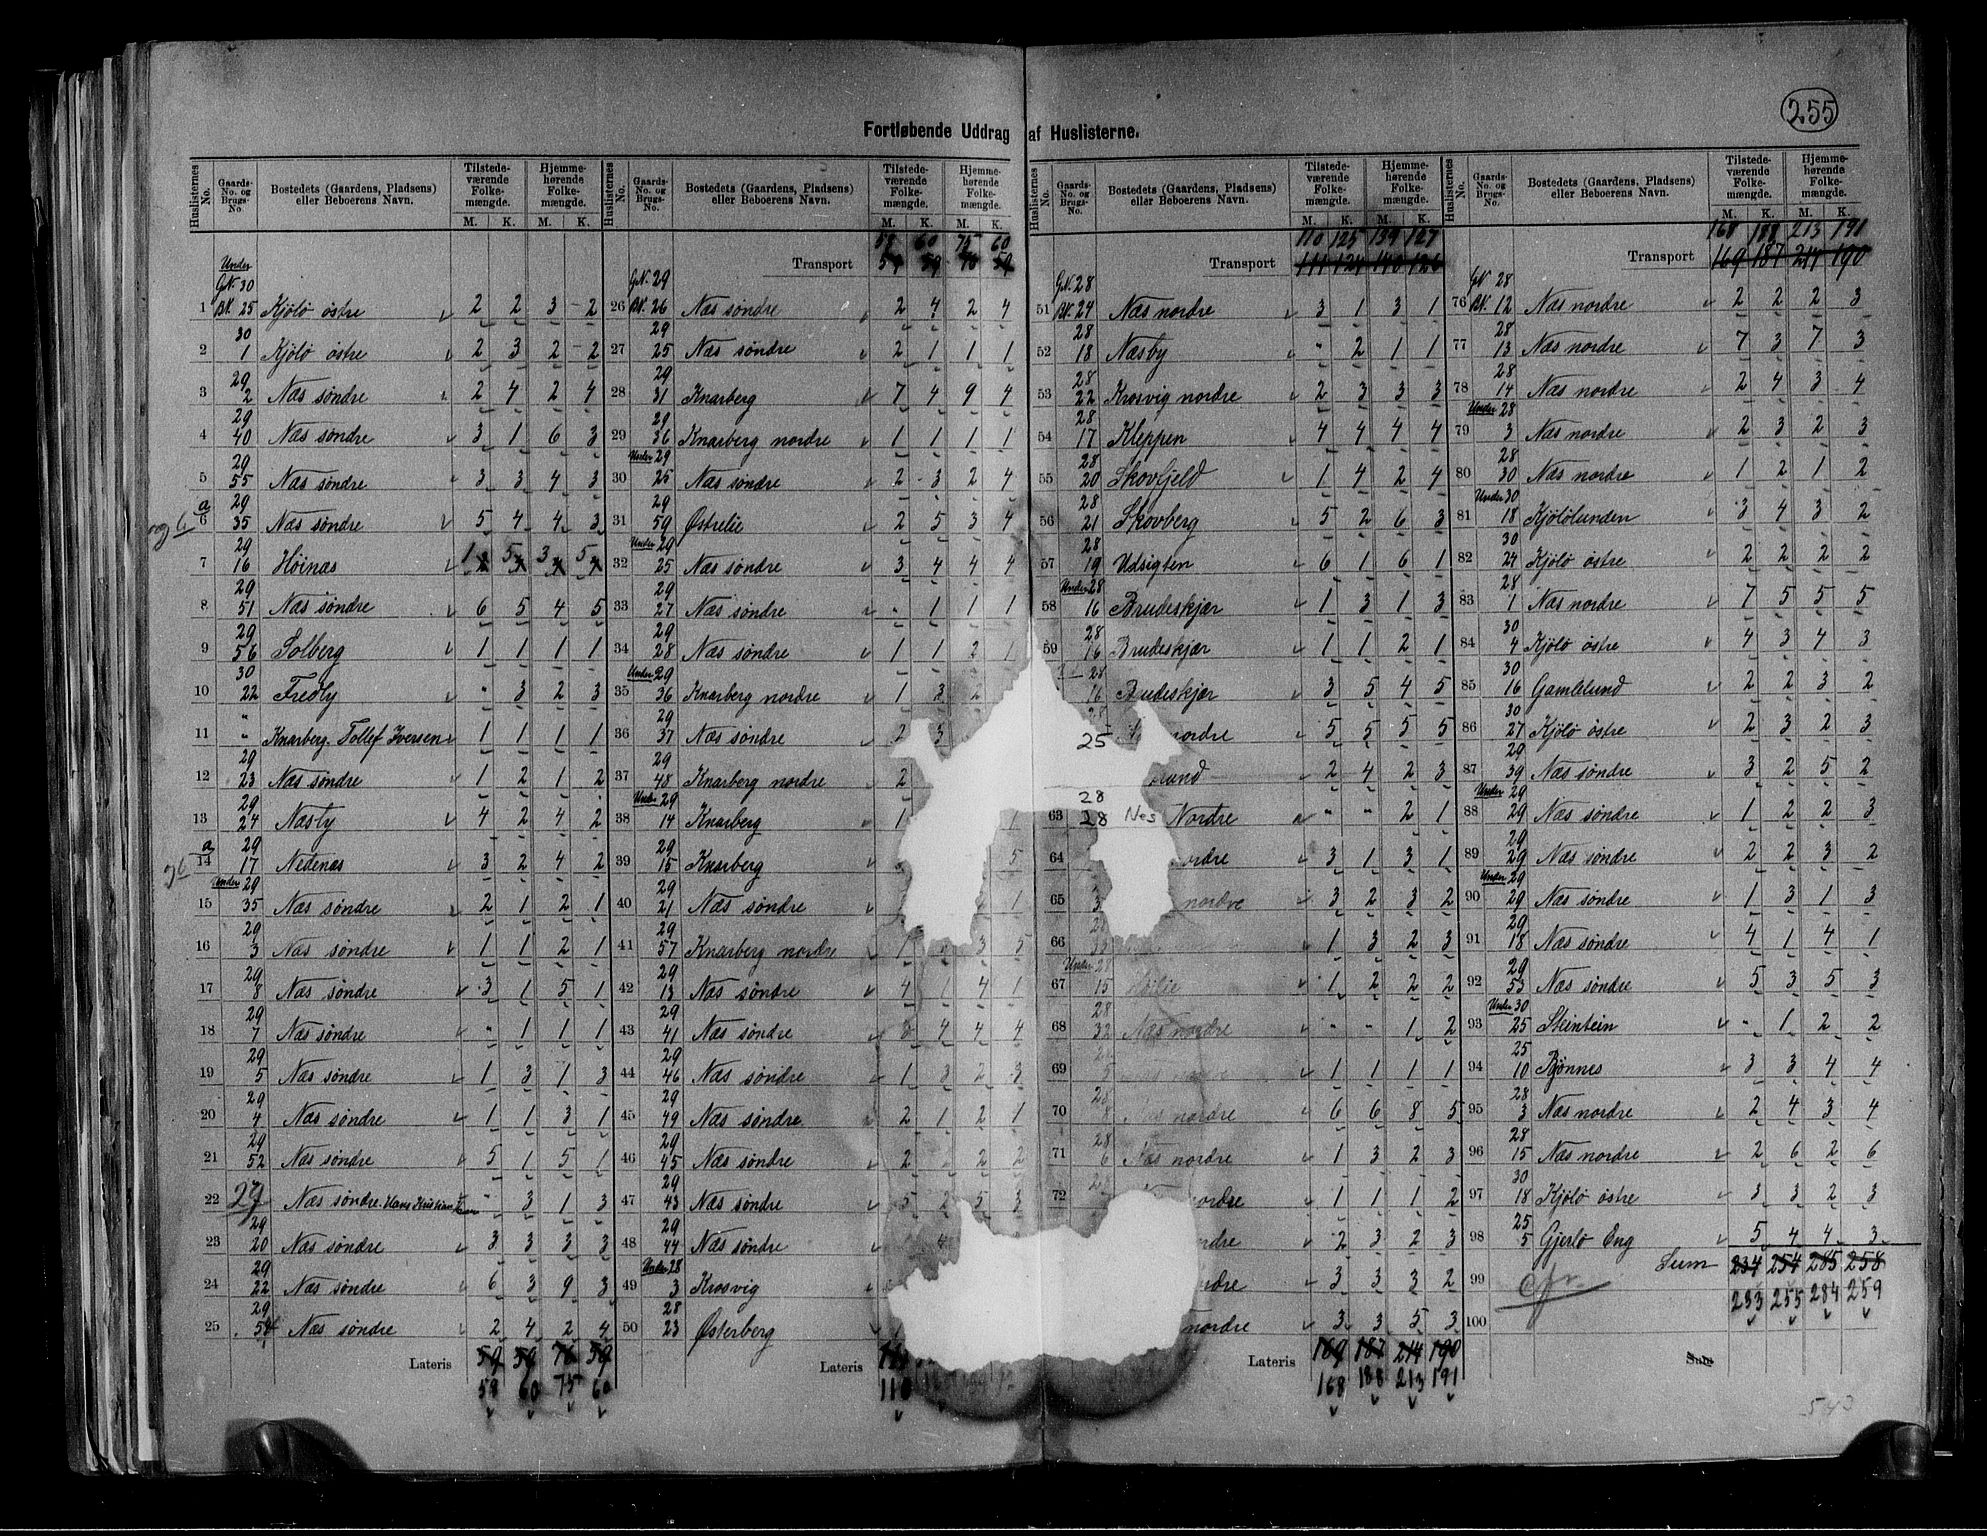 255
Fortløbende Uddrag af Huslisterne.
Huslisternes No. Gaards-No. og Brugs-No. Bostedets (Gaardens, Pladsens) eller Beboerens Navn. Tilstedeværende Folkemængde. M. K. Hjemmehørende Folkemængde. M. K.
Under GN. 30
1 BN. 25 Kjölö östre 2 2 3 2
2 30 1 Kjölö östre 2 3 2 2
3 29 2 Næs söndre 2 4 2 4
4 29 40 Næs söndre 3 1 6 3
5 29 55 Næs söndre 3 3 4 3
og b
a 6 29 35 Næs söndre 5 4 4 3
7 29 16 Höinæs 1 5 3 5
8 29 51 Næs söndre 6 5 4 5
9 29 56 Solberg 1 1 1 1
10 30 22 Fredly " 3 2 3
11 " Knarberg. Tollef Iversen 1 1 1 1
12 29 23 Næs söndre 1 2 1 2
13 29 24 Næsby 4 2 4 2
a 14 29 17 Nedenæs 3 2 4 2
15 Under 29 35 Næs söndre 2 1 2 1
16 29 3 Næs söndre 1 1 2 1
17 29 8 Næs söndre 3 1 5 1
18 29 7 Næs söndre " 1 1 1
19 29 5 Næs söndre 1 3 1 3
20 29 4 Næs söndre 1 1 3 1
21 29 52 Næs söndre 5 1 5 1
22 29 Næs söndre. Hans Kristian " 3 1 3
23 29 20 Næs söndre 3 3 3 3
24 29 22 Næs söndre 6 3 9 3
25 29 54 Næs söndre 2 4 2 4
Lateris 59 59 76 59
58 60 75 60
Huslisternes No. Gaards-No. og Brugs-No. Bostedets (Gaardens, Pladsens) eller Beboerens Navn. Tilstedeværende Folkemængde. M. K. Hjemmehørende Folkemængde. M. K.
58 60 75 60
Transport 59 59 76 59
26 GN. 29 BN. 26 Næs söndre 2 4 2 4
27 29 25 Næs söndre 2 1 1 1
28 29 31 Knarberg 7 4 9 4
29 29 36 Knarberg nordre 1 1 1 1
30 Under 29 25 Næs söndre 2 3 2 4
31 29 59 Østrelie 2 5 3 4
32 Under 29 25 Næs söndre 3 4 4 4
33 29 27 Næs söndre " 1 1 1
34 29 28 Næs söndre 1 1 2 1
35 Under 29 36 Knarberg nordre 1 3 2
36 29 37 Næs söndre 2 3
37 29 48 Knarberg nordre 2
38 Under 29 14 Knarberg 1 1
39 29 15 Knarberg 5
40 29 21 Næs söndre 1
41 29 57 Knarberg nordre 1 3 5
42 29 13 Næs söndre 4 1 4 1
43 29 41 Næs söndre 3 4 4 4
44 29 46 Næs söndre 1 3 2 3
45 29 49 Næs söndre 2 1 2 1
46 29 45 Næs söndre 2 2 2
47 29 43 Næs söndre 5 2 5 3
48 29 44 Næs söndre 4
49 Under 28 3 Krosvig
50 28 23 Østerberg
Lateris 111
110
Huslisternes No. Gaards-No. og Brugs-No. Bostedets (Gaardens, Pladsens) eller Beboerens Navn. Tilstedeværende Folkemængde. M. K. Hjemmehørende Folkemængde. M. K.
110 125 139 127
Transport 111 124 140 126
51 GN. 28 BN. 24 Næs nordre 3 1 3 1
52 28 18 Næsby " 2 1 1
53 28 22 Krosvig nordre 2 3 3 3
54 28 17 Kleppen 4 4 4 4
55 28 20 Skovfjeld 1 4 2 4
56 28 21 Skovberg 5 2 6 3
57 28 19 Udsigten 6 1 6 1
58 Under 28 16 Brudeskjær 1 3 1 3
59 28 16 Brudeskjær 1 1 2 1
28 16 Brudeskjær 3 5 4 5
28 25 nordre 5 5 5 5
28 lund 2 4 2 3
63 28 Nes Nordre " " 2 1
64 ordre 3 1 3 1
65 3 nordre 3 2 3 2
66 1 3 2 3
67 Under 28 15 Höilie 1 2 2 2
68 28 32 Næs nordre " " 1 2
69 5 1 1 1 1
70 28 8 Næs nordre 6 6 8 5
71 28 6 Næs nordre 1 3 2 3
72 nordre 1 1 1 2
ordre 2 3 2 3
dre 3 3 3 2
nordre 3 3 5 3
Lateris 169 187 214 190
168 188 213 191
Huslisternes No. Gaards-No. og Brugs-No. Bostedets (Gaardens, Pladsens) eller Beboerens Navn. Tilstedeværende Folkemængde. M. K. Hjemmehørende Folkemængde. M. K.
168 188 213 191
Transport 169 187 214 190
76 GN. 28 BN. 12 Næs nordre 2 2 2 3
77 28 13 Næs nordre 7 3 7 3
78 28 14 Næs nordre 2 4 3 4
79 Under 28 3 Næs nordre 2 3 2 3
80 28 30 Næs nordre 1 2 1 2
81 Under 30 18 Kjölölunden 3 4 3 2
82 30 24 Kjölö östre 2 2 2 2
83 28 1 Næs nordre 7 5 5 5
84 30 4 Kjölö östre 4 3 4 3
85 30 16 Gamlelund 2 2 3 2
86 30 27 Kjölö östre 2 3 2 3
87 29 39 Næs söndre 3 2 5 2
88 Under 29 29 Næs söndre 1 2 2 3
89 29 29 Næs söndre 2 2 3 2
90 Under 29 29 Næs söndre 1 3 1 3
91 29 18 Næs söndre 4 1 4 1
92 29 53 Næs söndre 5 3 5 3
93 Under 30 25 Steintein " 1 2 2
94 25 10 Bjönnes 3 3 4 4
95 28 3 Næs nordre 2 4 3 4
96 28 15 Næs nordre 2 6 2 6
97 30 18 Kjölö östre 3 3 2 3
98 25 5 Gjerlö Eng 5 4 4 3
Sum 234 254 285 258
99 cfr. 233 255 284 259
100
Sum
543